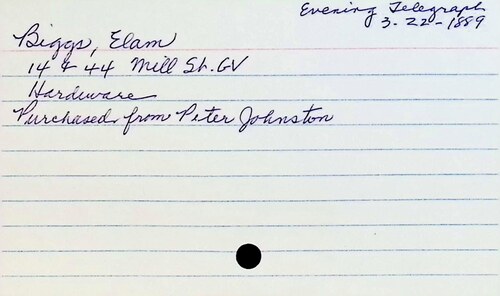 Evening Telegraph
3-22-1889
Biggs, Elam
14 & 44 Mill St. GV
Hardware
Purchased from Peter Johnston